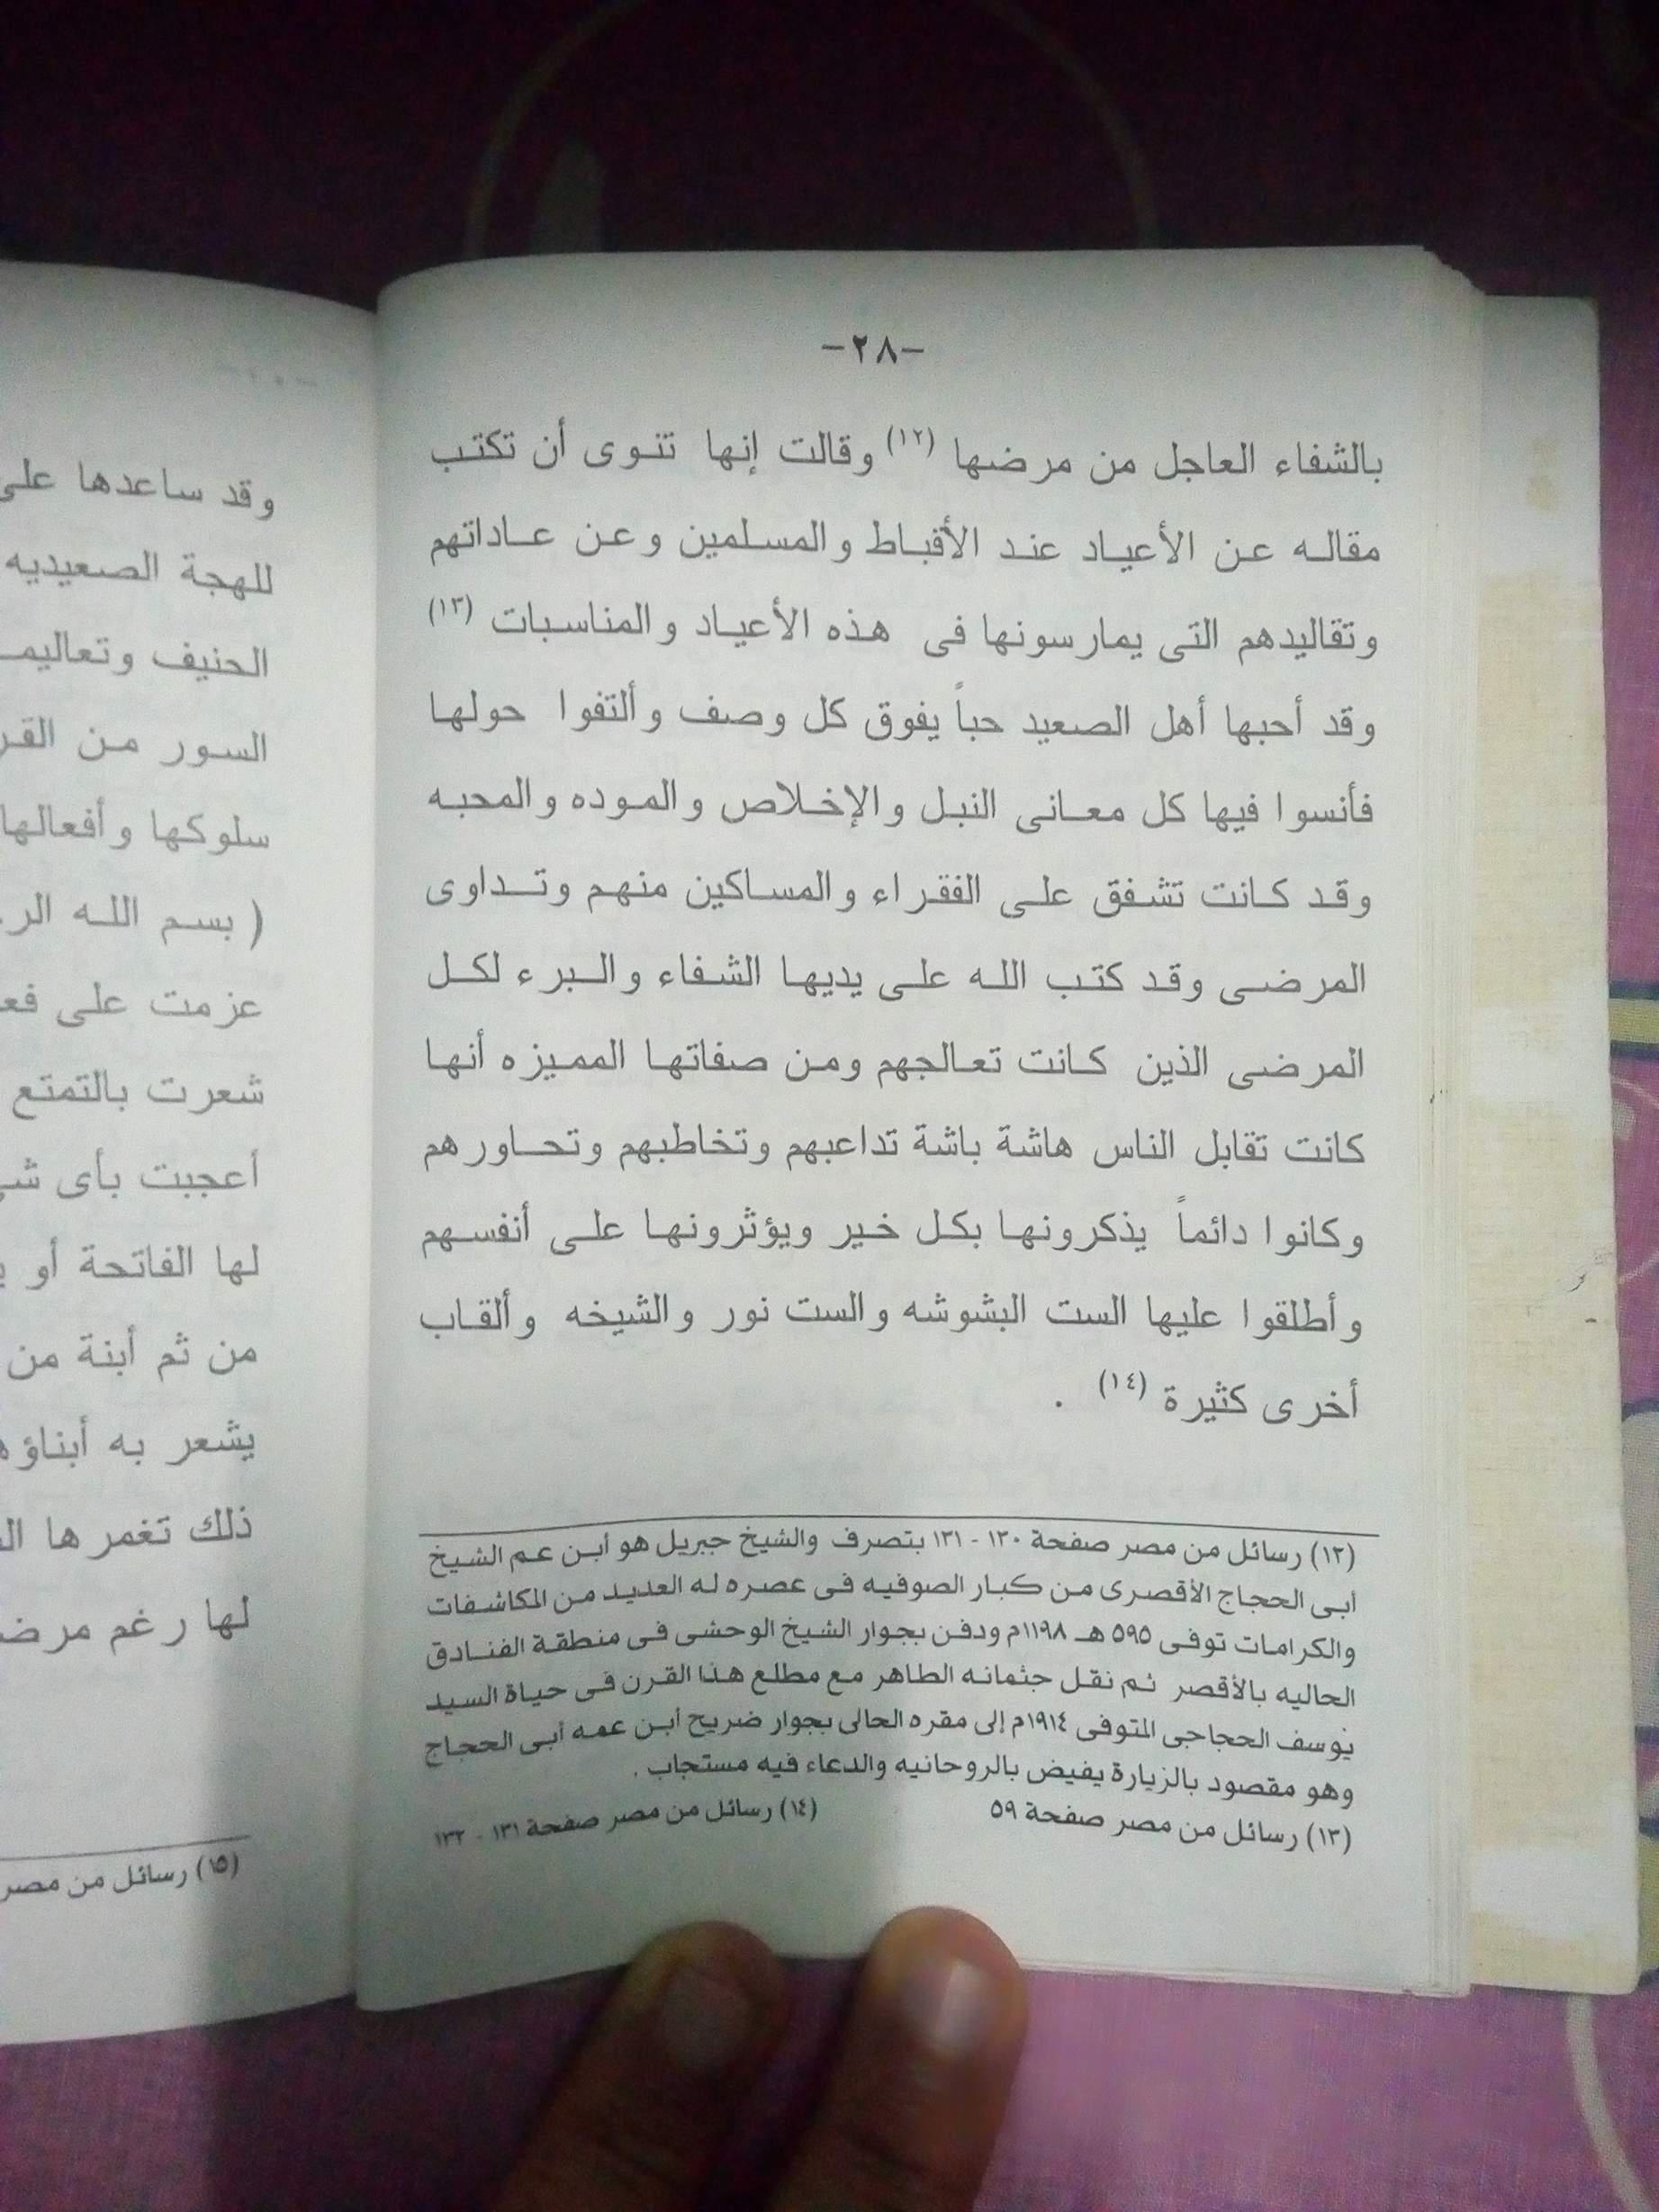 -٢٨-
بالشفاء العاجل من مرضها (١٢) وقالت إنها تنوى أن تكتب
مقاله عن الأعياد عند الأقباط والمسلمين وعن عاداتهم
وتقاليدهم التى يمارسونها فى هذه الأعياد والمناسبات (١٣)
وقد أحبها أهل الصعيد حباً يفوق كل وصف وألتفوا حولها
فأنسوا فيها كل معانى النبل والإخلاص والموده والمحبه
وقد كانت تشفق على الفقراء والمساكين منهم وتداوى
المرضى وقد كتب الله على يديها الشفاء والبرء لكل
المرضى الذين كانت تعالجهم ومن صفاتها المميزه أنها
كانت تقابل الناس هاشة باشة تداعبهم وتخاطبهم وتحاورهم
وكانوا دائماً يذكرونها بكل خير ويؤثرونها على أنفسهم
وأطلقوا عليها الست البشوشه والست نور والشيخه وألقاب
أخرى كثيرة (١٤) .
(١٢) رسائل من مصر صفحة ١٣٠ - ١٣١ بتصرف والشيخ جبريل هو أبن عم الشيخ
أبى الحجاج الأقصرى من كبار الصوفيه فى عصره له العديد من المكاشفات
والكرامات توفى ٥٩٥ هـ ١١٩٨م ودفن بجوار الشيخ الوحشى فى منطقة الفنادق
الحاليه بالأقصر ثم نقل جثمانه الطاهر مع مطلع هذا القرن فى حياة السيد
يوسف الحجاجى المتوفى ١٩١٤م إلى مقره الحالى بجوار ضريح أبن عمه أبى الحجاج
وهو مقصود بالزيارة يفيض بالروحانيه والدعاء فيه مستجاب .
(١٣) رسائل من مصر صفحة ٥٩ (١٤) رسائل من مصر صفحة ١٣١ - ١٣٢
وقد ساعدها على
للهجة الصعيديه
الحنيف
السور من
سلوكها وأفعالها
( بسم الله
عزمت على
شعرت بالتمتع
أعجبت بأى
لها الفاتحة أو
من ثم أبنة من
يشعر به
ذلك تغمرها
لها رغم
(١٥) رسائل من مصر